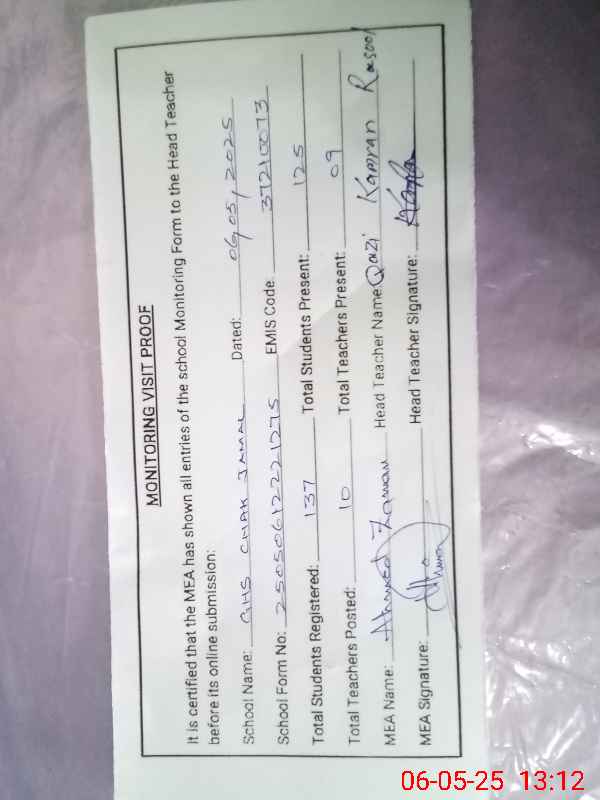 MONITORING VISIT PROOF
It is certified that the MEA has shown all entries of the school Monitoring Form to the Head Teacher
before its online submission:
School Name: GHS CHAK JAMAL Dated: 06,05,2025
School Form No: 250506122221275 EMIS Code: 37210073
Total Students Registered: 137 Total Students Present: 125
Total Teachers Posted: 10 Total Teachers Present: 09
MEA Name: Ahmed Zaman Head Teacher Name: Qazi Kamran Rasool
MEA Signature: Head Teacher Signature:
06-05-25 13:12